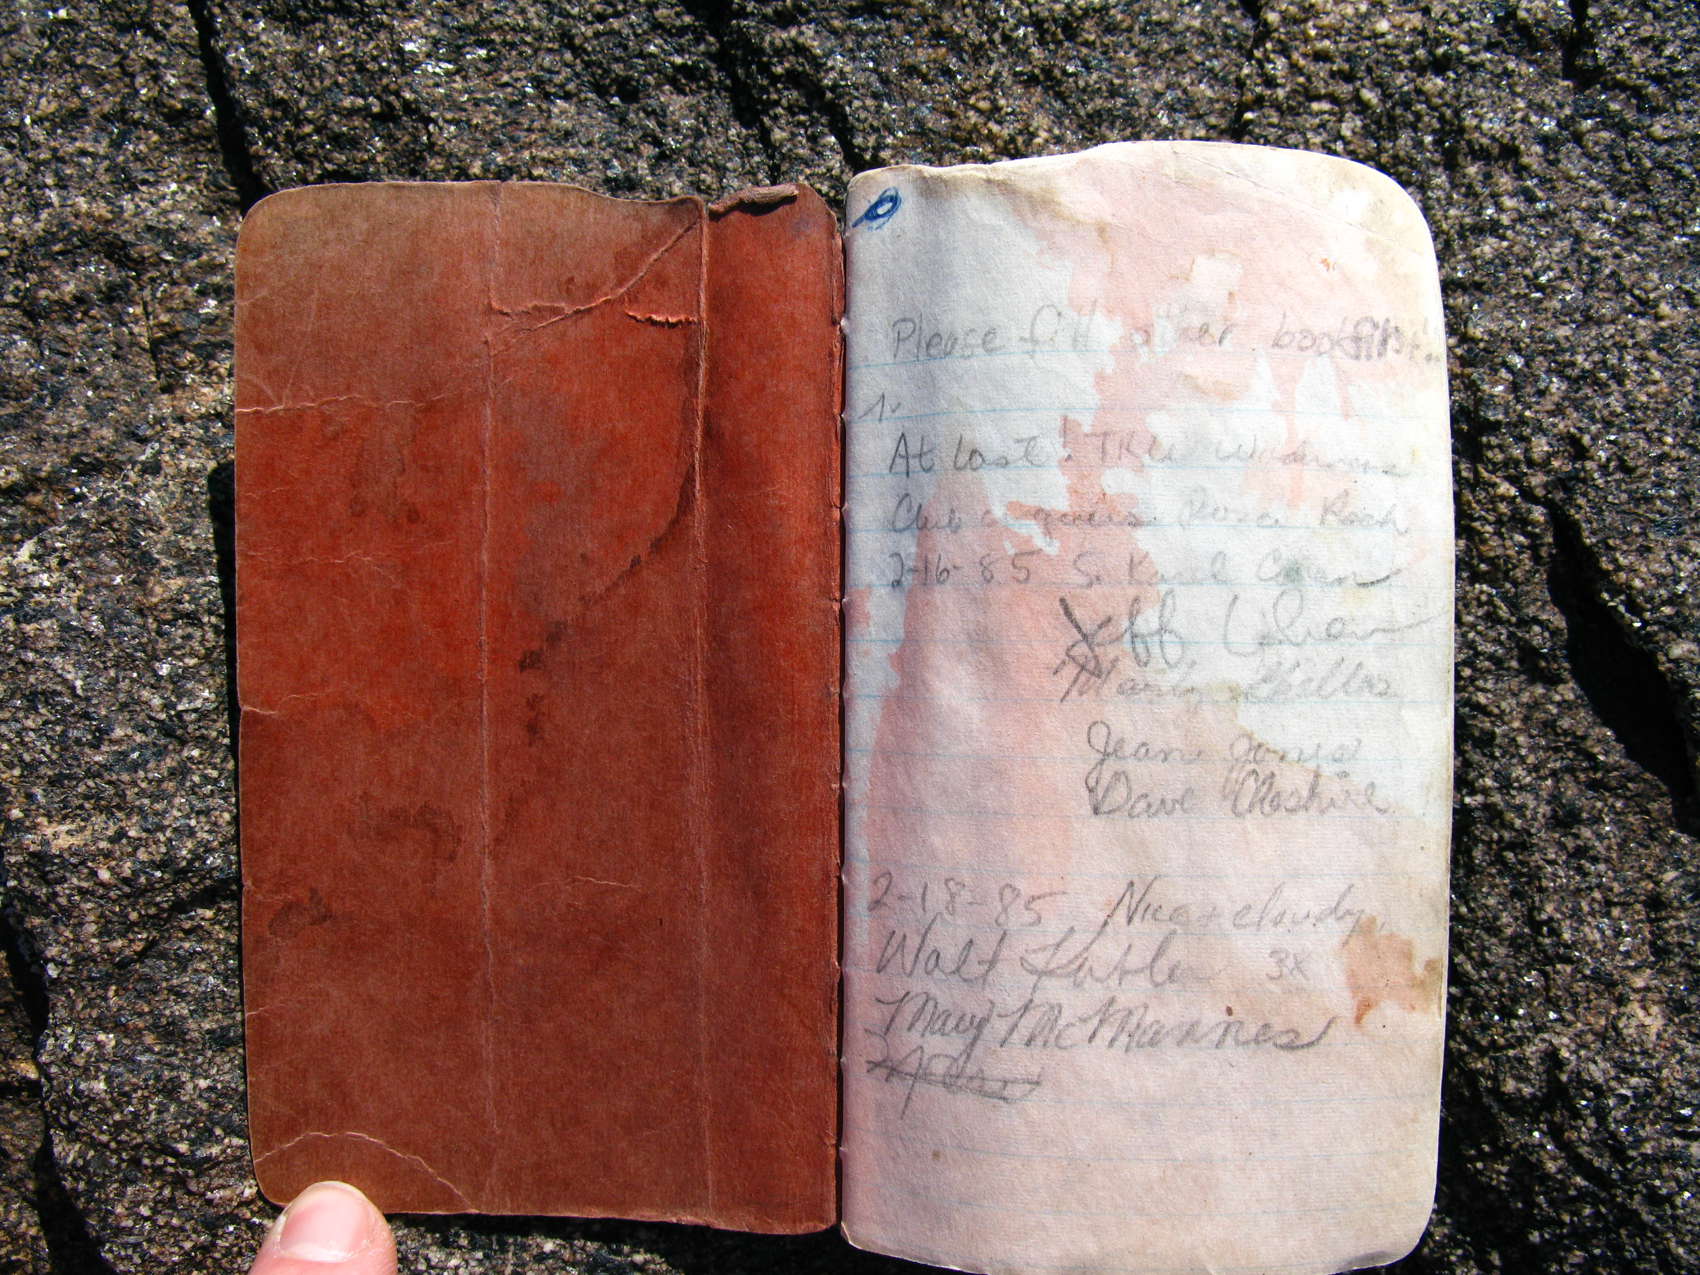 Please fill other book first!
1.
At last! The Wilderness
Club conquers Rosa Rock
2-16-85 S. Karel
Jeff
Marty
Jean Jones
Dave Cheshire
2-18-85 Nice + cloudy
Walt 3X
Mary McMannes